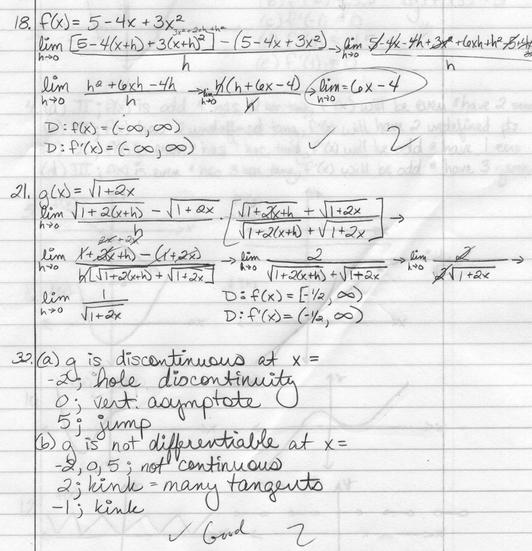 18. f(x) = 5-4x+3x²
3x²+2xh+h²
lim h→0 [5-4(x+h)+3(x+h)²]-(5-4x+3x²) / h → lim h→0 5-4x-4h+3x²+6xh+h²-5+4x / h
lim h→0 h²+6xh-4h / h → lim h→0 h(h+6x-4) / h → lim h→0 = 6x-4
D: f(x) = (-∞, ∞)
D: f'(x) = (-∞, ∞) ✓ 2
21. g(x) = √1+2x
lim h→0 √1+2(x+h) - √1+2x / h · [√1+2x+h + √1+2x / √1+2(x+h) + √1+2x] →
2x+2x
lim h→0 1+2(x+h) - (1+2x) / h[√1+2(x+h) + √1+2x] → lim h→0 2 / √1+2(x+h) + √1+2x → lim h→0 2 / 2√1+2x →
lim h→0 1 / √1+2x D: f(x) = [-1/2, ∞)
D: f'(x) = (-1/2, ∞)
32. (a) g is discontinuous at x =
-2; hole discontinuity
0; vert. asymptote
5; jump
(b) g is not differentiable at x=
-2, 0, 5; not continuous
2; kink = many tangents
-1; kink
✓ Good 2